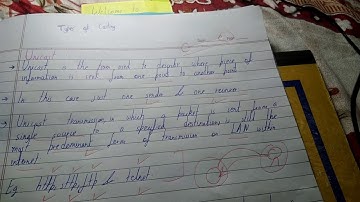 Types of Casting
Unicast
→ Unicast is the term used to describe where piece of
information is sent from one point to another point
→ In this case just one sender & one reciever
→ Unicast transmission, in which a packet is sent from a
single source to a specified destinations is still the
most predominent form of transmission on LAN within
internet
Eg http, stp, ftp & telnet